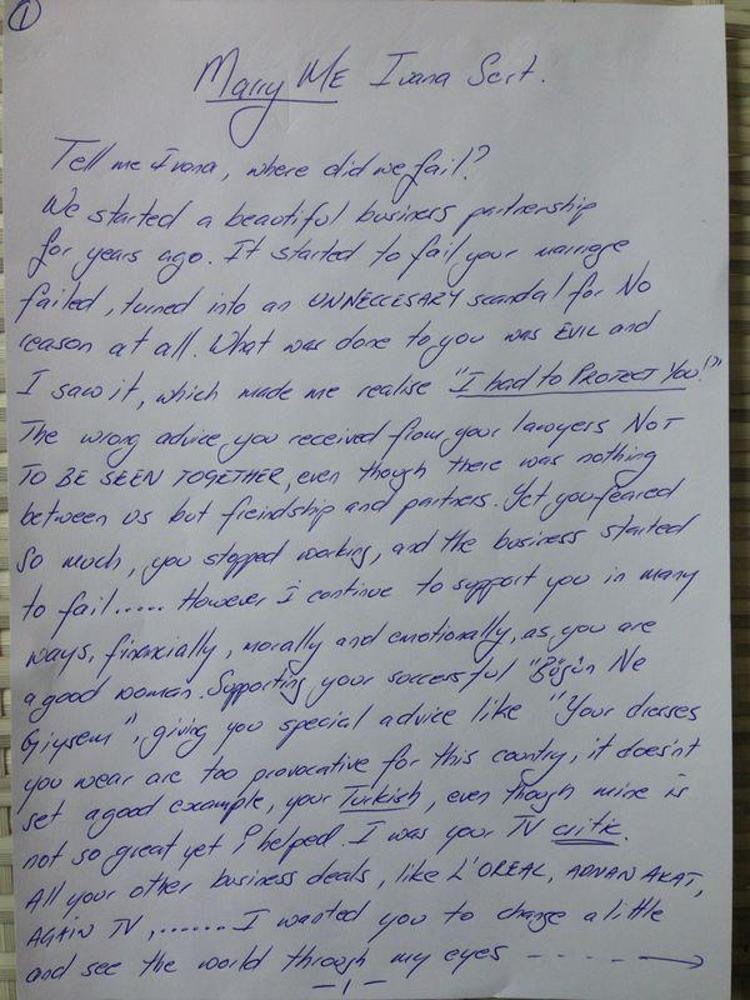 1
Marry ME Ivana Sert.
Tell me Ivana, where did we fail?
We started a beautiful business partnership
for years ago. It started to fail your marriage
failed, turned into an UNNECCESARY scandal for No
reason at all. What was done to you was EVIL and
I saw it, which made me realise "I had to PROTECT You!"
The wrong advice you received from your lawyers NOT
TO BE SEEN TOGETHER, even though there was nothing
between us but freindship and partners. Yet you feared
So much, you stopped working, and the business started
to fail..... However I continue to support you in many
ways, financially, morally and emotionally, as you are
a good woman. Supporting your successful "Bügün Ne
Giysem", giving you special advice like "Your dresses
you wear are too provocative for this country, it doesn't
set a good example, your Turkish, even though mine is
not so great yet I helped. I was your TV critik.
All your other business deals, like L'OREAL, ADNAN AKAT,
AGAIN TV,....... I wanted you to change a little
and see the world through my eyes - - - - →
-1-